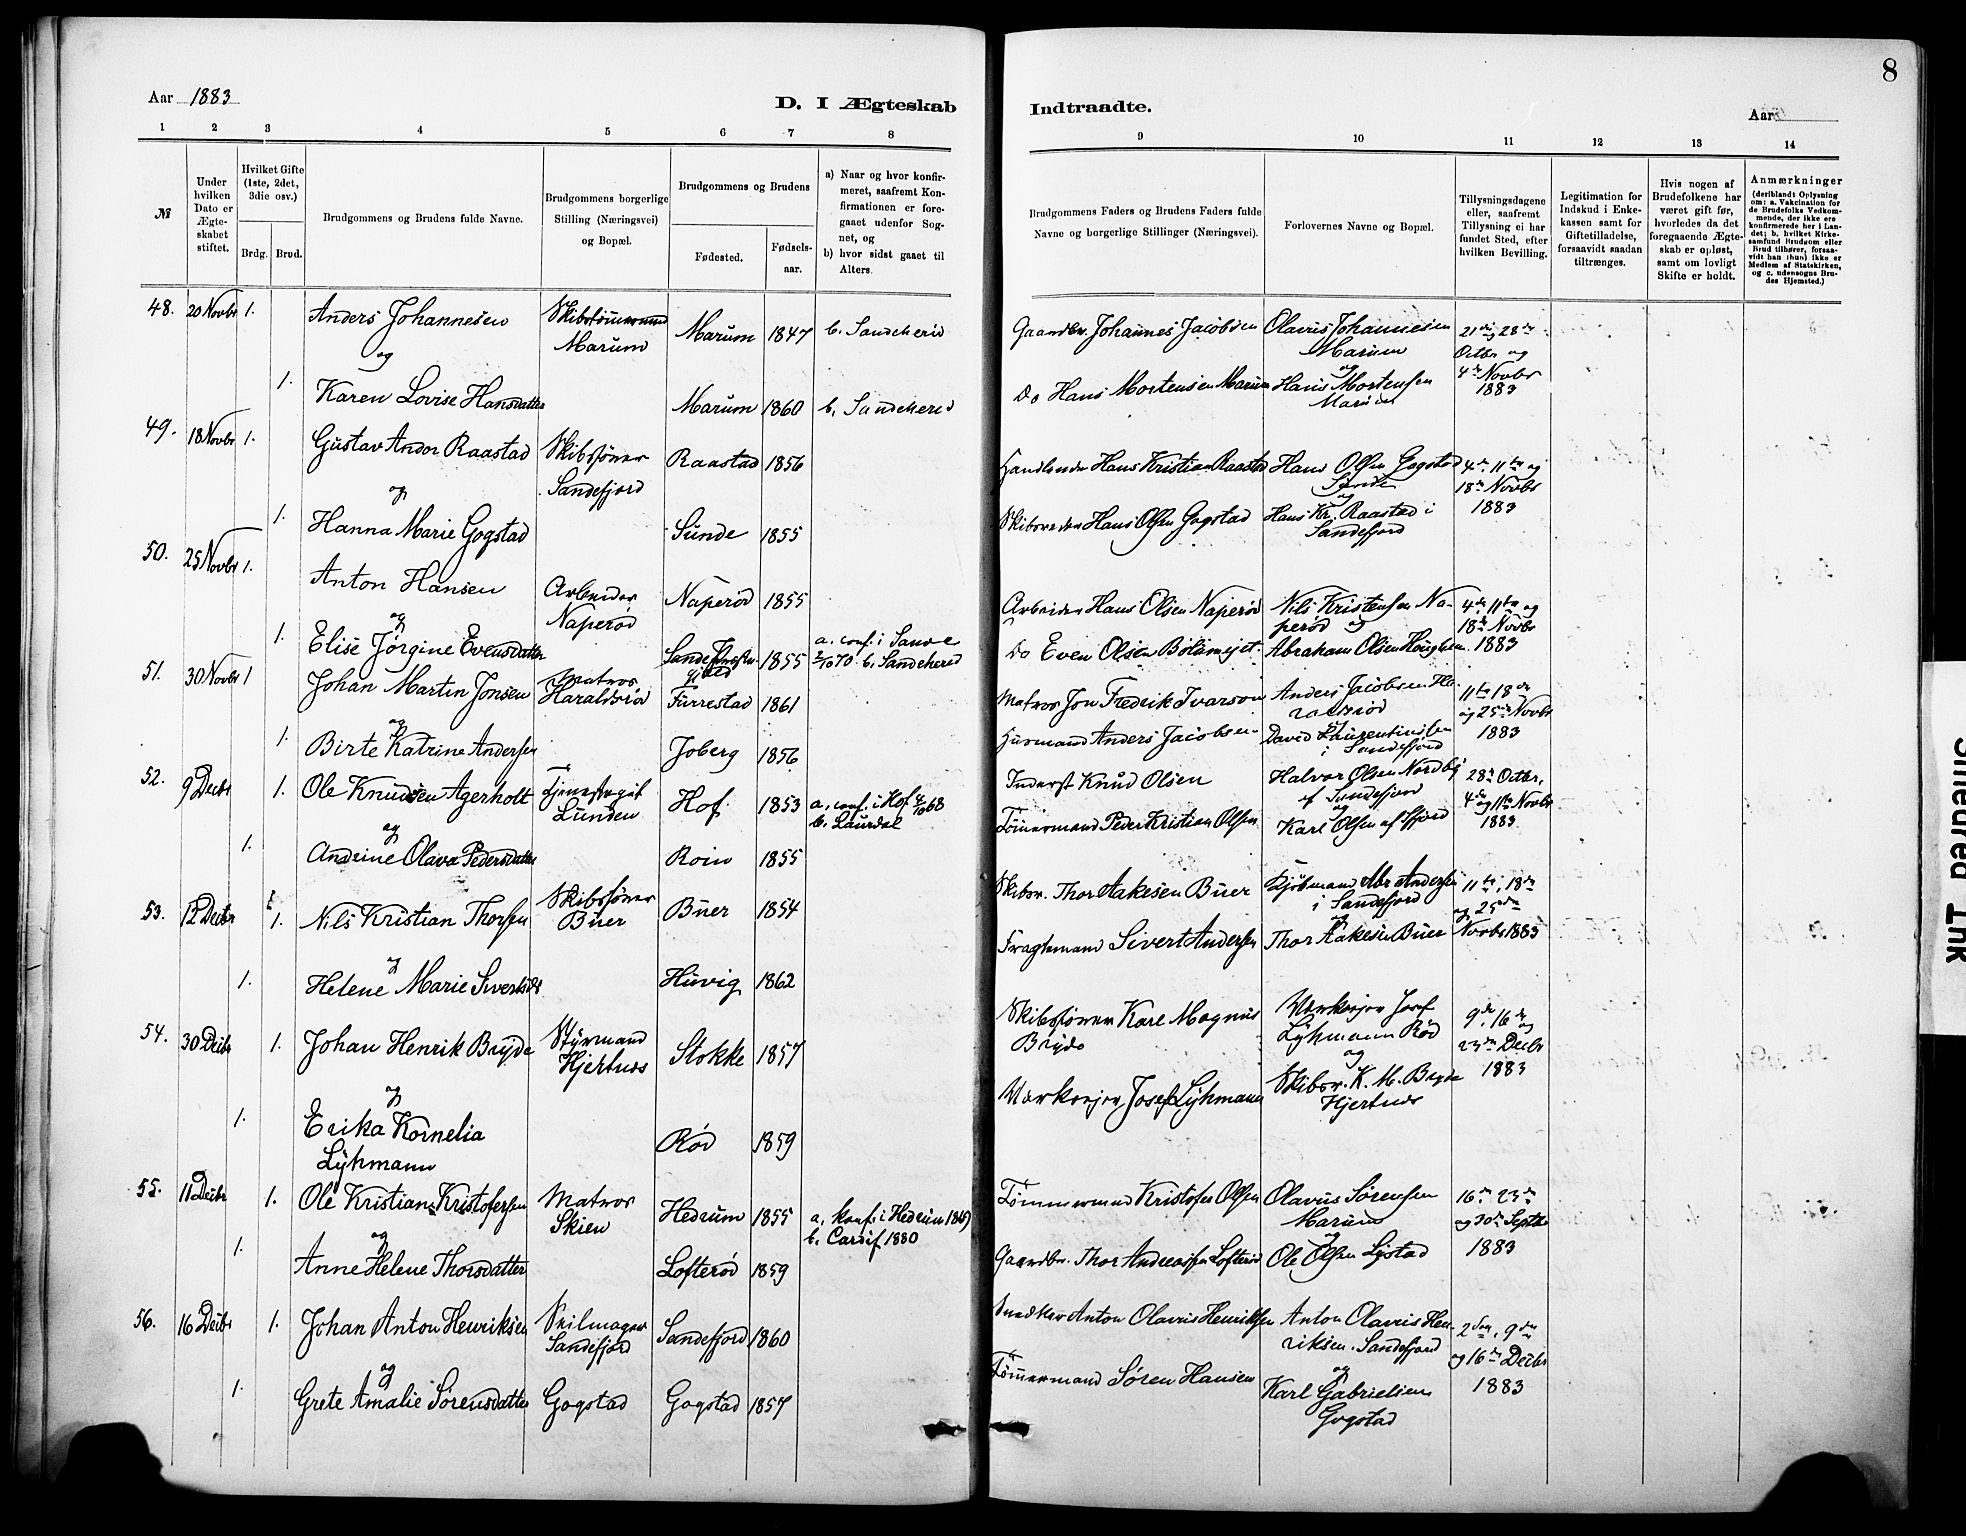 8
Aar 1883
D. I Ægteskab
Indtraadte.
Aar
1 2 3 4 5 6 7 8
9 10 11 12 13 14
№
Under
hvilken
Dato er
Ægte-
skabet
stiftet.
Hvilket Gifte
(1ste, 2det,
3die osv.)
Brdg. Brud.
Brudgommens og Brudens fulde Navne.
Brudgommens borgerlige
Stilling (Næringsvei)
og Bopæl.
Brudgommens og Brudens
Fødested.
Fødsels-
aar.
a) Naar og hvor konfir-
meret, saafremt Kon-
firmationen er fore-
gaaet udenfor Sog-
net, og
b) hvor sidst gaaet til
Alters.
Brudgommens Faders og Brudens Faders fulde
Navne og borgerlige Stillinger (Næringsvei).
Forlovernes Navne og Bopæl.
Tillysningsdagene
eller, saafremt
Tillysning ei har
fundet Sted, efter
hvilken Bevilling.
Legitimation for
Indskud i Enke-
kassen samt for
Giftetilladelse,
forsaavidt saadan
tiltrænges.
Hvis nogen af
Brudefolkene har
været gift før,
hvorledes da det
foregaaende Ægte-
skab er opløst,
samt om lovligt
Skifte er holdt.
Anmærkninger
(deriblandt Oplysning
om: a. Vakcination for
de Brudefolks Vedkom-
mende, der ikke ere
konfirmerede her i Lan-
det; b. hvilket Kirke-
samfund Brudgom eller
Brud tilhører, forsaa-
vidt han (hun) ikke er
Medlem af Statskirken,
og c. udensogns Bru-
des Hjemsted.)
48. 20 Novbr 1. Anders Johannesen
Marum
Marum 1847 b. Sandeherred
Gaardbr. Johannes Jacobsen
Olavus Johannesen
Marum
og
21de og 28de
Octbr og
4de Novbr
1883
og
1. Karen Lovise Hansdatter
Marum 1860 b. Sandeherred
Do Hans Mortensen Marum
Hans Mortensen
Marum
49. 18 Novbr 1. Gustav Andor Raastad
Skibsfører
Sandefjord
Raastad 1856
Handlende Hans Kristian Raastad
Hans Olsen Gogstad
og
4de 11te og
18de Novbr
1883
og
1. Hanna Marie Gogstad
Sunde 1855
Hans Olsen Gogstad
Hans Kr. Raastad i
Sandefjord
50. 25 Novbr 1. Anton Hansen
Arbeider
Naperød
Naperød 1855
Arbeider Hans Olsen Naperød
Nils Kristensen Na-
perød og
4de 11te og
18de Novbr
1883
og
1. Elise Jørgine Evensdatter
1855
a. conf. i Sande
b. Sandeherred
Do Even Olsen
Abraham Olsen Haughem
51. 30 Novbr 1 Johan Martin Jonsen
Matros
Haraldsrød
Furrestad 1861
Matros Jon Fredrik Ivarson
Anders Jacobsen Ha-
raldsrød
11te 18de
og 25de Novbr
1883
og
1. Birte Katrine Andersen
Joberg 1856
Husmand Anders Jacobsen
David Laurentiussen
i Sandefjord
52. 9 Decbr 1. Ole Knudsen Agerholt
Lunden
Hof 1853
a. conf. i Hof 68
b. Laurdal
Inderst Knud Olsen
Halvor Olsen Nordby
af Sandefjord
og
28de Octbr,
4de og 11te Novbr
1883
og
1. Andrine Olava Pedersdatter
Roin 1855
Tømmermand Peder Kristian Olsen
Karl Olsen af Sfjord
53. 12 Decbr 1. Nils Kristian Thorsen
Skibsfører
Buer
Buer 1854
Skibsr. Thor Aakesen Buer
Kjøbmand Abr Andersen
i Sandefjord
og
11te, 18de
og 25de
Novbr 1883
og
1. Helene Marie
Huvig 1862
Fragtemand Sivert Andersen
Thor Aakesen Buer
54. 30 Decbr 1. Johan Henrik Bryde
Styrmand
Hjertnæs
Stokke 1857
Skibsfører Karl Magnus
Bryde
Værkseier Josef
Lyhmann Rød
og
9de, 16de
og
23de Decbr
1883
og
1. Erika Kornelia
Lyhmann
Rød 1859
Værkseier Josef Lyhmann
Skibsr. K. M. Bryde
Hjertnæs
55. 11 Decbr 1. Ole Kristian Kristofersen
Matros
Skien
Hedrum 1855
a. konf. i Hedrum
b. Cardif 1880
Tømmermand Kristofer Olsen
Olavus Sørensen
Marum
og
16de 23de
og 30de Septbr
1883
og
1. Anne Helene Thorsdatter
Lofterød 1859
Gaardbr. Thor Andreassen Lofterød
Ole Olsen Lystad
56. 16 Decbr 1. Johan Anton Henriksen
Seilmager
Sandefjord
Sandefjord 1860
Snedker Anton Olavus Henriksen
Anton Olavus Hen-
riksen. Sandefjord
og
2den, 9de
og 16de Decbr
1883
og
1. Grete Amalie Sørensdatter
Gogstad
Gogstad 1857
Tømmermand Søren Hansen
Karl Gabrielsen
Gogstad